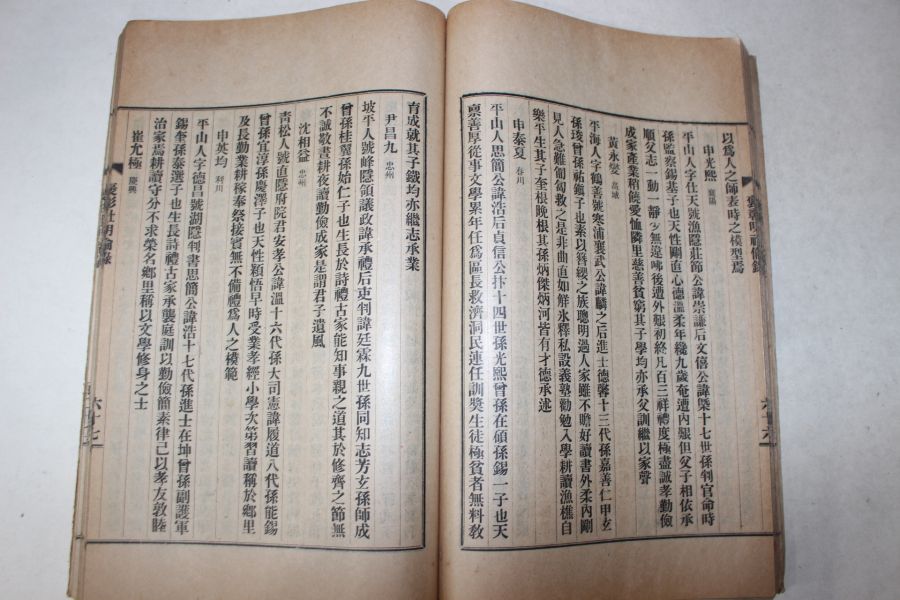 以爲人之師表時之模型焉
申光熙 襄陽
平山人字仕天號漁隱莊節公諱崇謙后文僖公諱槩十七世孫判官命時
孫監察錫基子也天性剛直心德溫柔年纔九歲奄遭內艱但父子相依承
順父志一動一靜少無違咈後遭外艱初終凡百三祥禮度極盡誠孝勤儉
成家產業稍饒愛恤隣里慈善貧窮其子學均亦承父訓繼以家聲
黃永燮 高城
平海人字鶴善號寒浦襄武公諱麟之后進士德馨十三代孫嘉善仁甲玄
孫琼曾孫祐鎭子也素以簪纓之族聰明過人家雖不贍好讀書外柔內剛
見人急難匍匐救之是非曲直如鮮氷釋私設義塾勸勉入學耕讀漁樵自
樂平生其子奎根晚根其孫炳傑炳河皆有才德承述
申泰夏 春川
平山人思簡公諱浩后貞信公抃十四世孫光熙曾孫在碩孫錫一子也天
稟善厚從事文學累年任爲區長救濟洞民連任訓獎生徒極貧者無料敎
育成就其子鐵均亦繼志承業
尹昌九 忠州
坡平人號峰隱領議政諱承禮后吏判諱廷霖九世孫同知志芳玄孫師成
曾孫桂翼孫始仁子也生長於詩禮古家能知事親之道其於修齊之節無
不誠敬晝耕夜讀勤儉成家是謂君子遺風
沈相益 忠州
靑松人號直隱府院君安孝公諱溫十六代孫大司憲諱履道八代孫能錫
曾孫宜淳孫慶澤子也天性穎悟早時受業孝經小學次第習讀稱於鄕里
及長勤業耕稼奉祭接賓無不備禮爲人之模範
申英均 利川
平山人字德昌號湖隱判書思簡公諱浩十七代孫進士在坤曾孫副護軍
錫奎孫泰選子也生長詩禮古家承襲庭訓以勤儉簡素律己以孝友敦睦
治家焉耕讀守分不求榮名鄕里稱以文學修身之士
崔允極 慶興
六十七